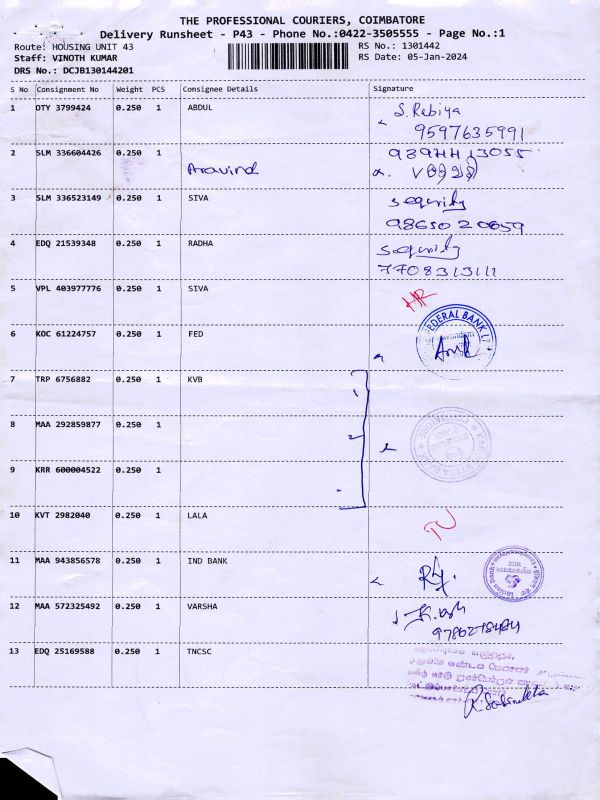 THE PROFESSIONAL COURIERS, COIMBATORE
Delivery Runsheet - P43 - Phone No.:0422-3505555 - Page No.:1
Route: HOUSING UNIT 43
RS No.: 1301442
Staff: VINOTH KUMAR
RS Date: 05-Jan-2024
DRS No.: DCJB130144201
S No Consignment No Weight PCS Consignee Details Signature
1 OTY 3799424 0.250 1 ABDUL S. Rabiya
9597635991
2 SLM 336604426 0.250 1 Aravind
3 SLM 336523149 0.250 1 SIVA Sequrity
4 EDQ 21539348 0.250 1 RADHA Sequrity
7708313111
5 VPL 403977776 0.250 1 SIVA
6 KOC 61224757 0.250 1 FED FEDERAL BANK
7 TRP 6756882 0.250 1 KVB
8 MAA 292859877 0.250 1
9 KRR 600004522 0.250 1
10 KVT 2982040 0.250 1 LALA
11 MAA 943856578 0.250 1 IND BANK Indian Bank
12 MAA 572325492 0.250 1 VARSHA
13 EDQ 25169588 0.250 1 TNCSC